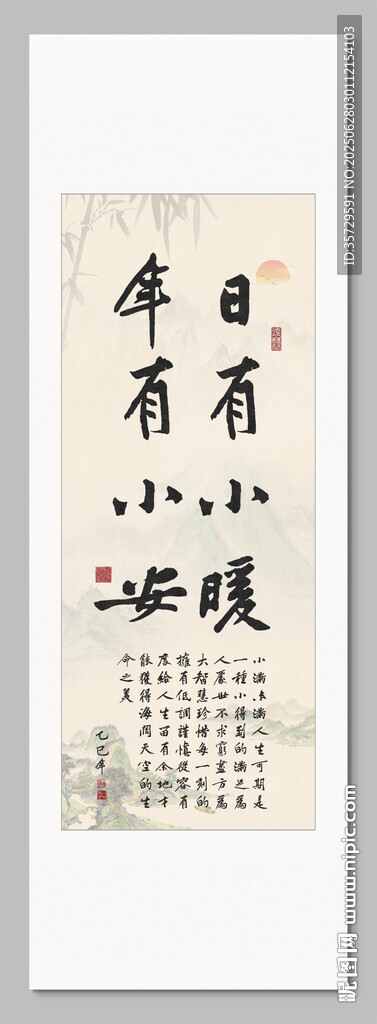 日有小暖
年有小安
小滿未滿人生可期是
一種小得到的滿足為
人處世不求窮盡方為
大智慧珍惜每一刻的
擁有低調謹慎從容有
度給人生留有余地才
能獲得海闊天空的生
命之美
乙巳年
ID:35729591 NO:20250628030112154103
昵图网 www.nipic.com